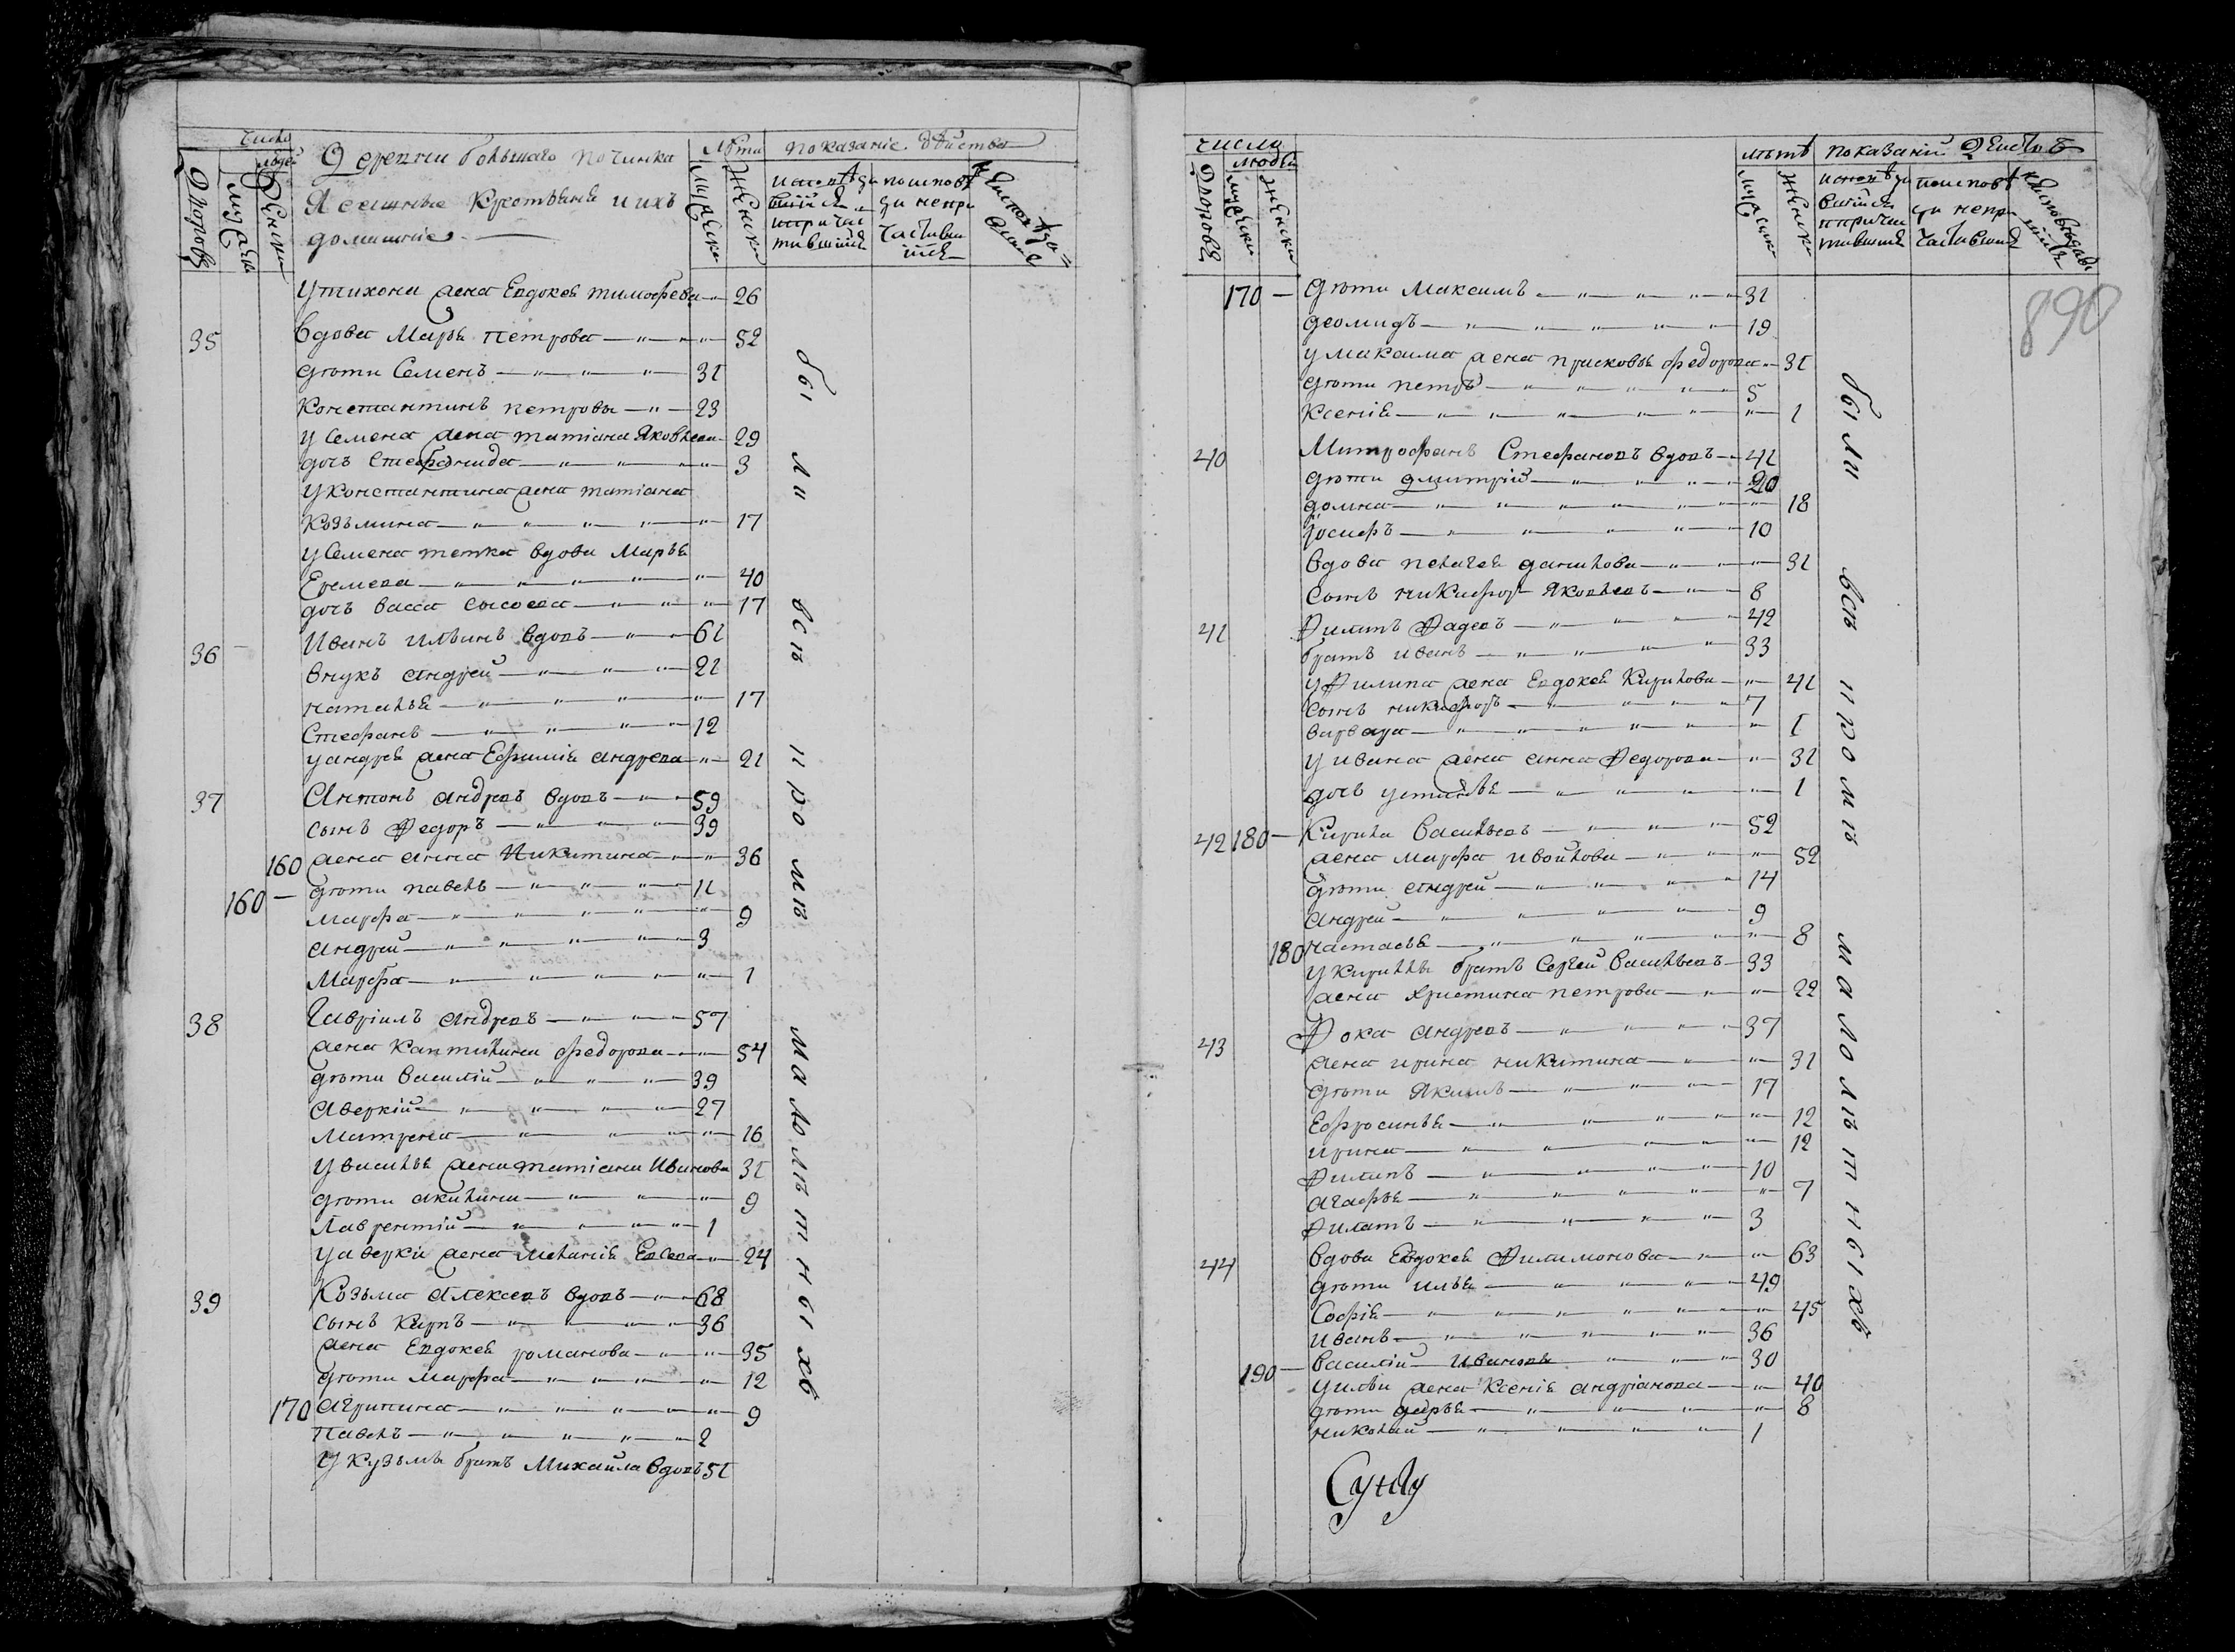 число
людей
Дворовъ
мужеска
женска
Деревни большаго починка
Ясешные Крестьяне и ихъ
домашние
Лѣта
мужеска
женска
показание дѣйства
исповѣда
вшийся
и прича
тившийся
по исповѣ
ди непри
частивши
шся
У тихона жена Евдокея тимофеева 26
35 вдова Марья петрова 52
дѣти Семенъ 31
Константинъ петровы 23
у Семена жена татиана Яковлева 29
дочь Стефанида 3
у константина жена татиана
Козьмина 17
у Семена тетка вдова Марья
Еремева 40
дочь васса Сысоева 17
36 Иванъ ильинъ вдовъ 61
внукъ андрей 21
наталья 17
Стефанъ 12
у андрея жена Ефимия андреева 21
37 Антонъ андревъ вдовъ 59
сынъ Федоръ 39
160 жена анна Никитина 36
160 дѣти павелъ 11
марфа 9
андрей 3
Марфа 1
38 Гаврiилъ андревъ 57
жена капитилина федорова 54
дѣти василiй 39
аверкiй 27
матрена 16
у василья жена татиана Иванова 31
дѣти акилина 9
Лаврентiй 1
у аверкия жена мелания Евсева 24
39 Козьма алексеевъ вдовъ 68
сынъ карпъ 36
жена Евдокея романова 35
дѣти Марфа 12
170 агрипина 9
павелъ 2
У кузьмы братъ Михаила вдовъ 51
были всѣ и ро мѣ малолѣтныхъ
число
людей
Дворовъ
мужеска
женска
лѣтъ
мужеска
женска
показанiй Действъ
исповѣда
вшийся
и причас
тившийся
по исповѣ
ди непри
частившийся
890
170 дѣти Максимъ 31
деомидъ 19
у максима жена прасковья федорова 31
дѣти петръ 5
ксения 1
40 Митрофанъ Стефановъ вдовъ 41
дѣти дмитрiй 20
домна 18
iосифъ 10
вдова пелагея данилова 31
сынъ никифоръ Яковлевъ 8
41 Филипъ Фадевъ 42
братъ иванъ 33
у Филипа жена Евдокея Кирилова 41
сынъ никифоръ 7
варвара 1
у ивана жена анна Федорова 31
дочь устинья 1
42 180 Кирила васильевъ 52
жена марфа ивойлова 52
дѣти андрей 14
андрей 9
180 настасья 8
у кирилы братъ Сергей васильевъ 33
жена христина петрова 22
43 Фока андревъ 37
жена ирина никитина 31
дѣти Якимъ 17
Ефросинья 12
ирина 12
Филипъ 10
агафья 7
Филатъ 3
44 вдова Евдокея Филимонова 63
дѣти илья 49
Софiя 45
иванъ 36
190 василiй Ивановы 30
у ильи жена Ксенiя андрiанова 40
дѣти дарья 8
николай 1
были всѣ и ро мѣ малолѣтныхъ